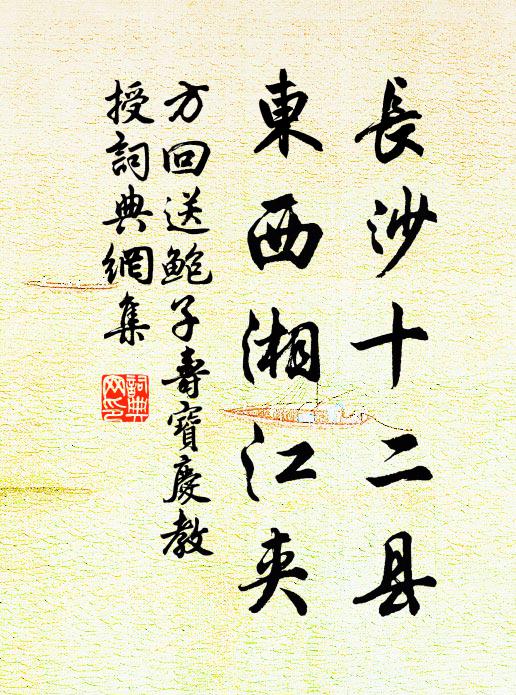 長沙十二县
東西湘江夹
方回送鲍子壽寶慶教
授詞典網集
詞典
网印